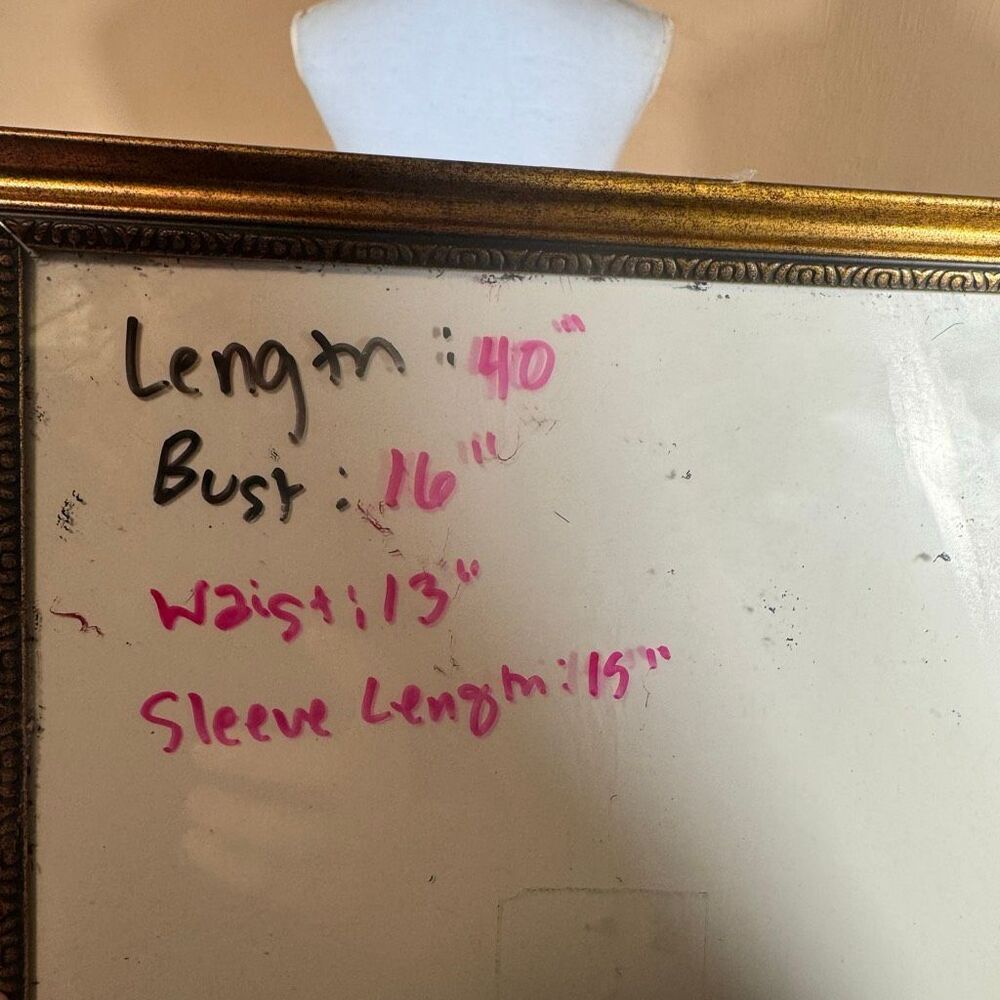 Length: 40"
Bust: 16"
Waist: 13"
Sleeve Length: 15"